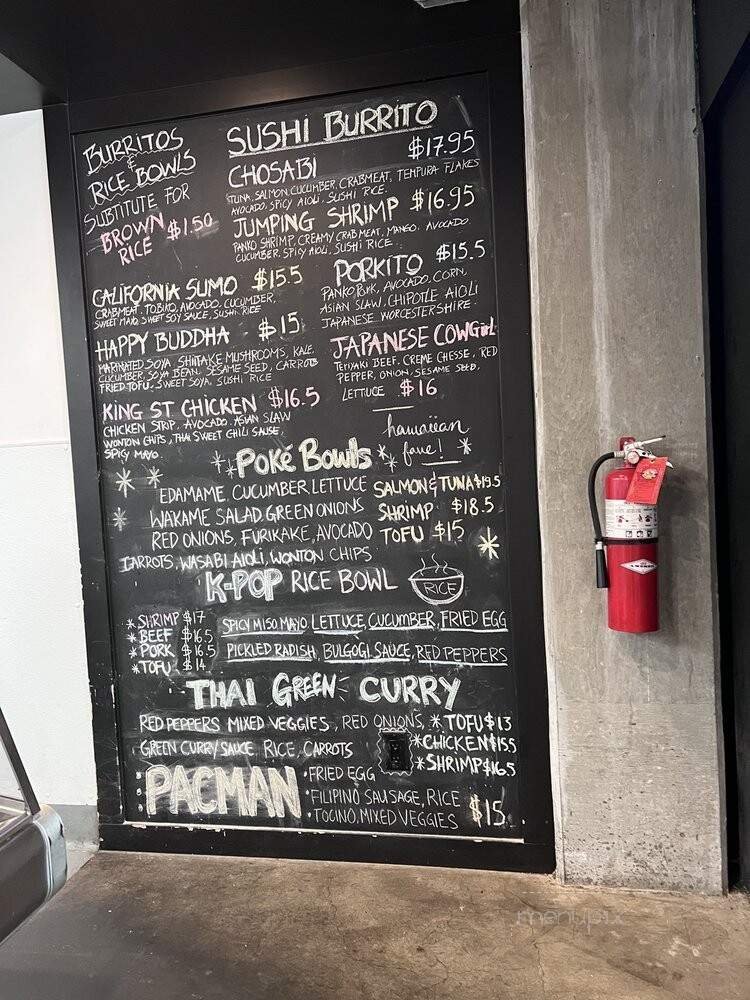 BURRITOS
&
RICE BOWLS
SUBTITUTE FOR
BROWN
RICE $1.50
SUSHI BURRITO
CHOSABI $17.95
TUNA, SALMON, CUCUMBER, CRABMEAT, TEMPURA FLAKES
AVOCADO, SPICY AIOLI, SUSHI RICE.
JUMPING SHRIMP $16.95
PANKO SHRIMP, CREAMY CRABMEAT, MANGO, AVOCADO
CUCUMBER, SPICY AIOLI, SUSHI RICE
CALIFORNIA SUMO $15.5
CRABMEAT, TOBIKO, AVOCADO, CUCUMBER,
SWEET MAYO, SWEET SOY SAUCE, SUSHI RICE
PORKITO $15.5
PANKO PORK, AVOCADO, CORN,
ASIAN SLAW, CHIPOTLE AIOLI
JAPANESE WORCESTERSHIRE.
HAPPY BUDDHA $15
MARINATED SOYA, SHIITAKE MUSHROOMS, KALE,
CUCUMBER, SOYA BEAN, SESAME SEED, CARROTS
FRIED TOFU, SWEET SOYA, SUSHI RICE
JAPANESE COWGirL
TERIYAKI BEEF, CREME CHESSE, RED
PEPPER, ONION, SESAME SEED,
LETTUCE $16
KING ST CHICKEN $16.5
CHICKEN STRIP, AVOCADO, ASIAN SLAW
WONTON CHIPS, THAI SWEET CHILI SAUSE,
SPICY MAYO.
hawaiian
fave!
POKÉ BOWLS
EDAMAME, CUCUMBER LETTUCE
WAKAME SALAD, GREEN ONIONS
RED ONIONS, FURIKAKE, AVOCADO
CARROTS, WASABI AIOLI, WONTON CHIPS
SALMON & TUNA $19.5
SHRIMP $18.5
TOFU $15
K-POP RICE BOWL
RICE
* SHRIMP $17
* BEEF $16.5
* PORK $16.5
* TOFU $14
SPICY MISO MAYO LETTUCE, CUCUMBER, FRIED EGG
PICKLED RADISH, BULGOGI SAUCE, RED PEPPERS
THAI GREEN CURRY
RED PEPPERS MIXED VEGGIES, RED ONIONS,
GREEN CURRY SAUCE, RICE, CARROTS
* TOFU $13
* CHICKEN $15.5
* SHRIMP $16.5
PACMAN
• FRIED EGG
• FILIPINO SAUSAGE, RICE
• TOCINO, MIXED VEGGIES
$15
menupix